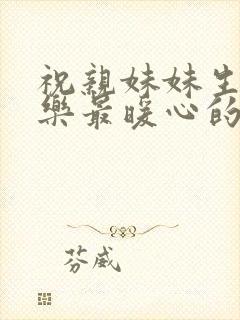 祝亲妹妹生
乐最暖心的
芬威